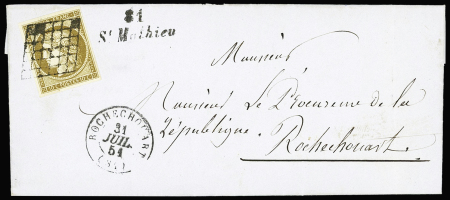 81
St Mathieu
Monsieur
Monsieur Le Procureur de la
République.
Rochechouart.
ROCHECHOUART
31
JUIL.
51
(81)